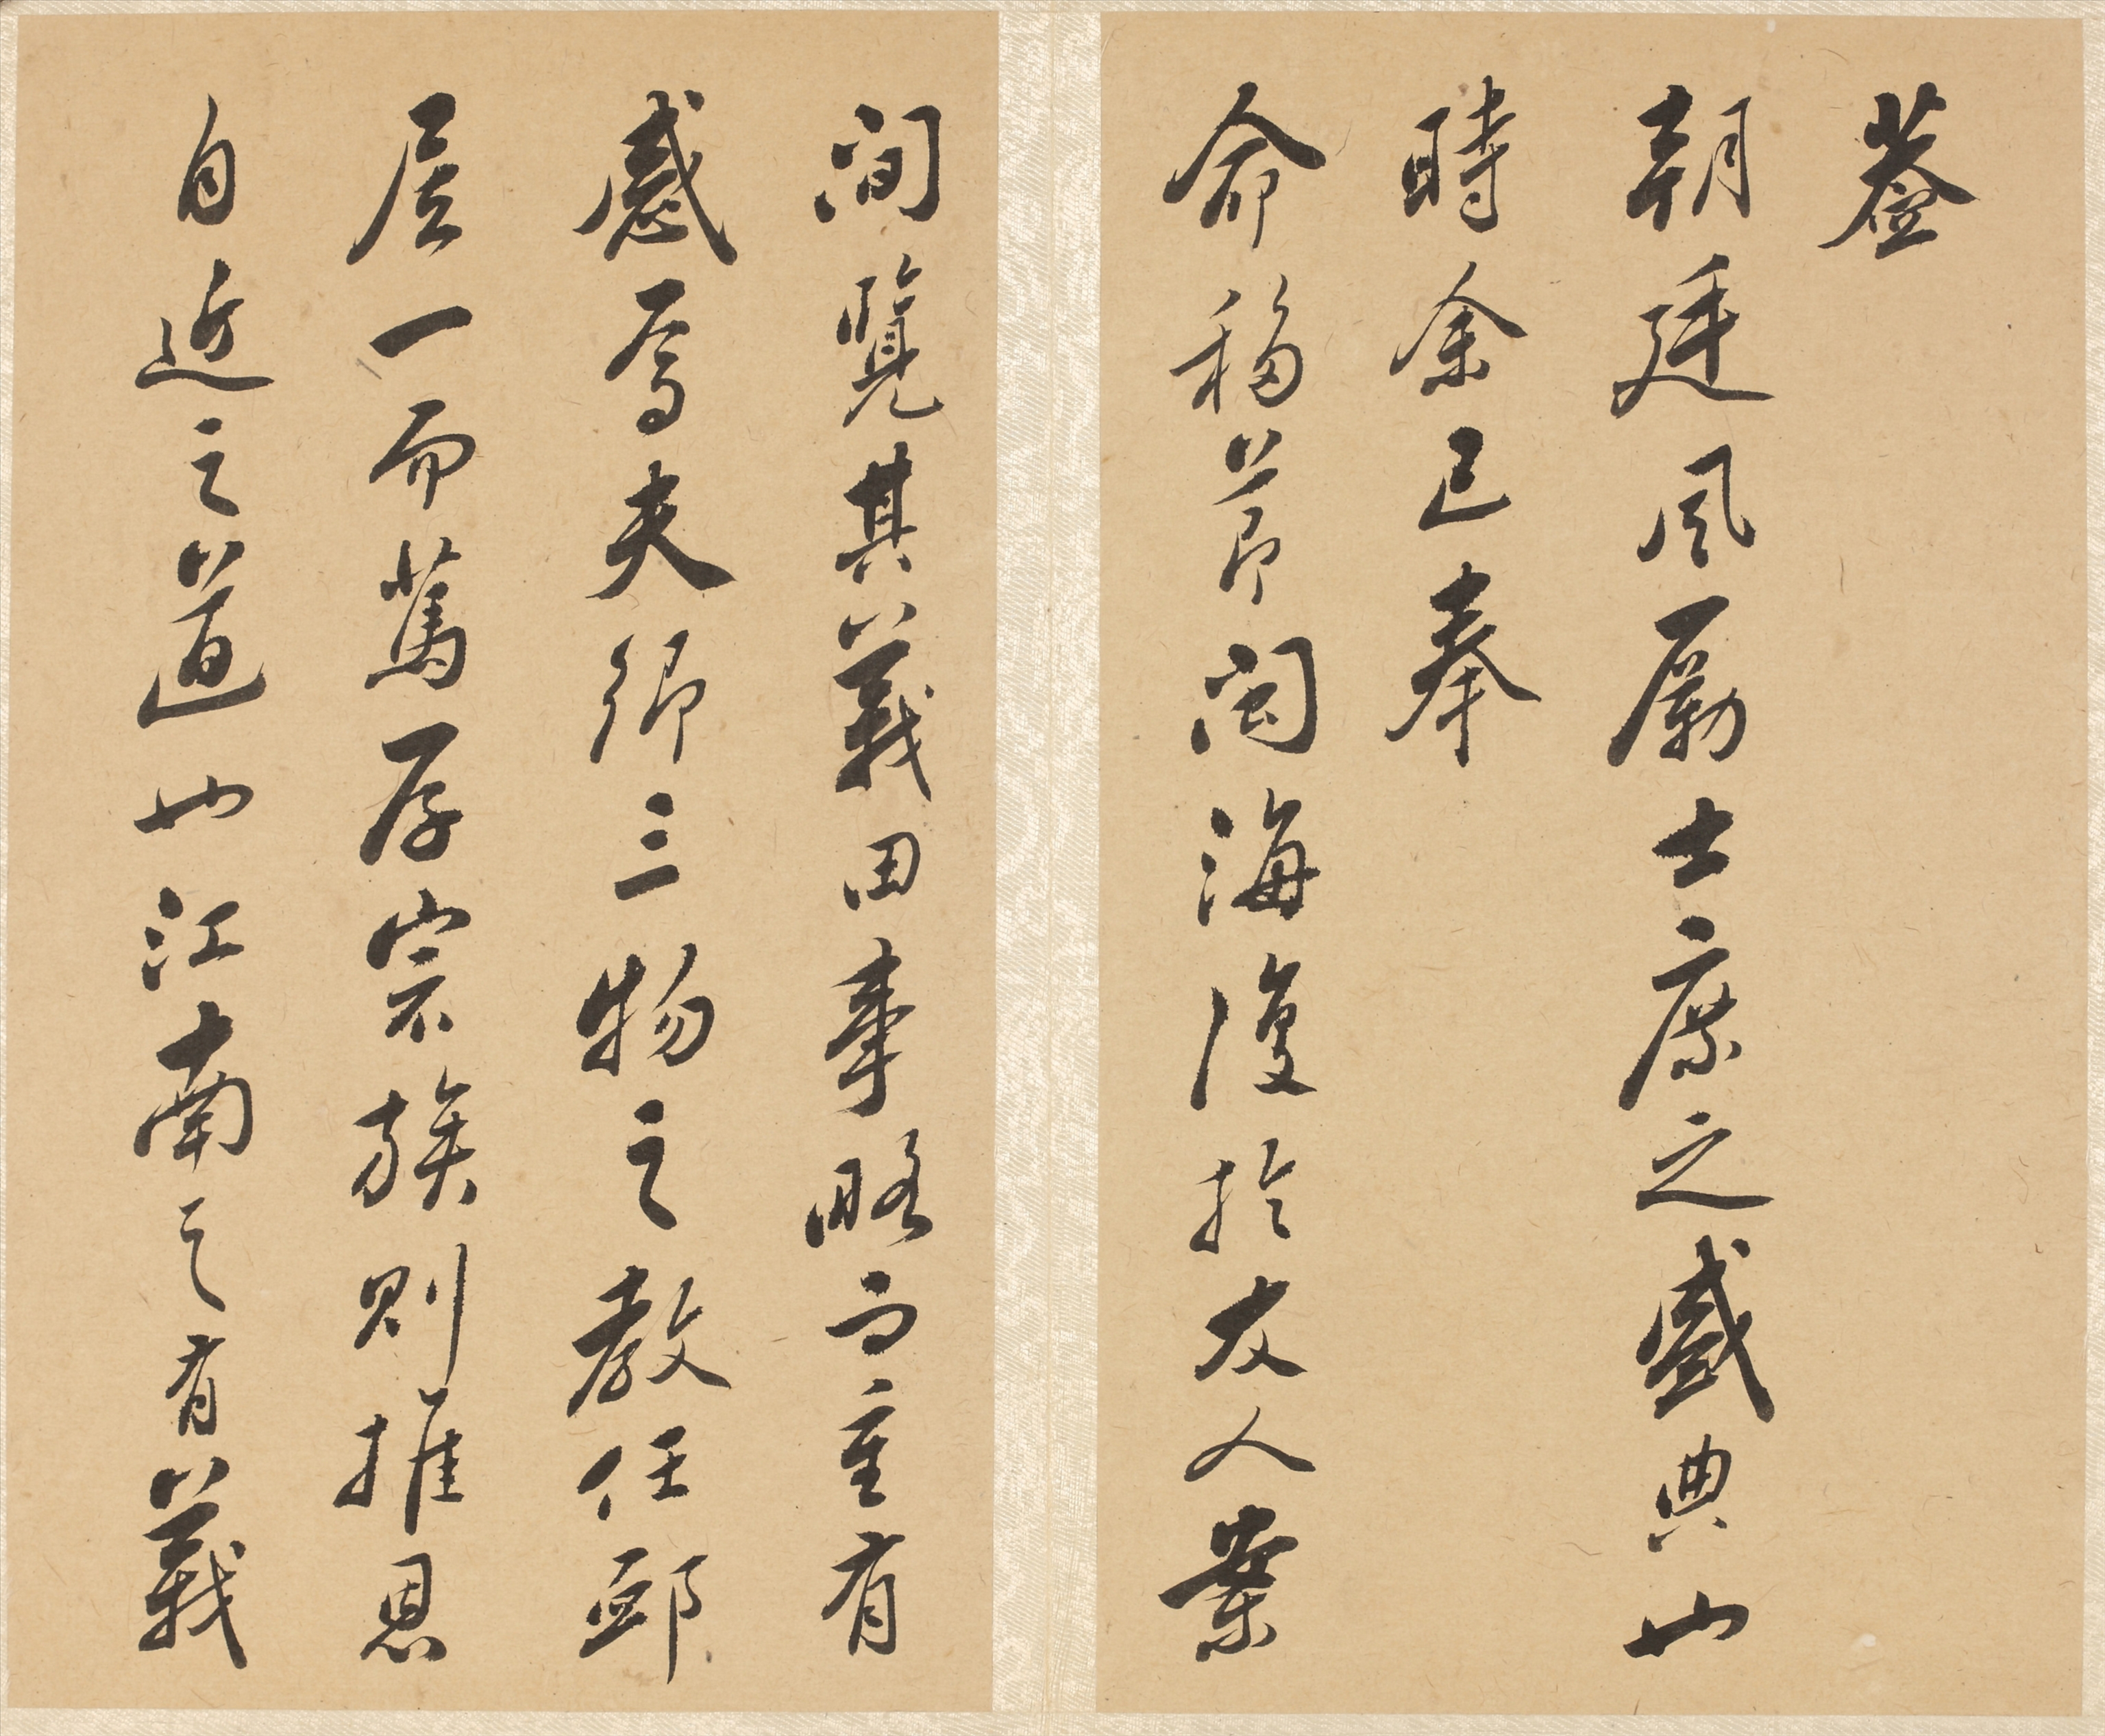 蓋
朝廷風勵士庶之盛典也
時余已奉
命移節閩海復於友人案
間覽其義田事略而重有
感焉夫鄉三物之教任卹
居一而篤厚宗族則推恩
自近之道也江南之有義